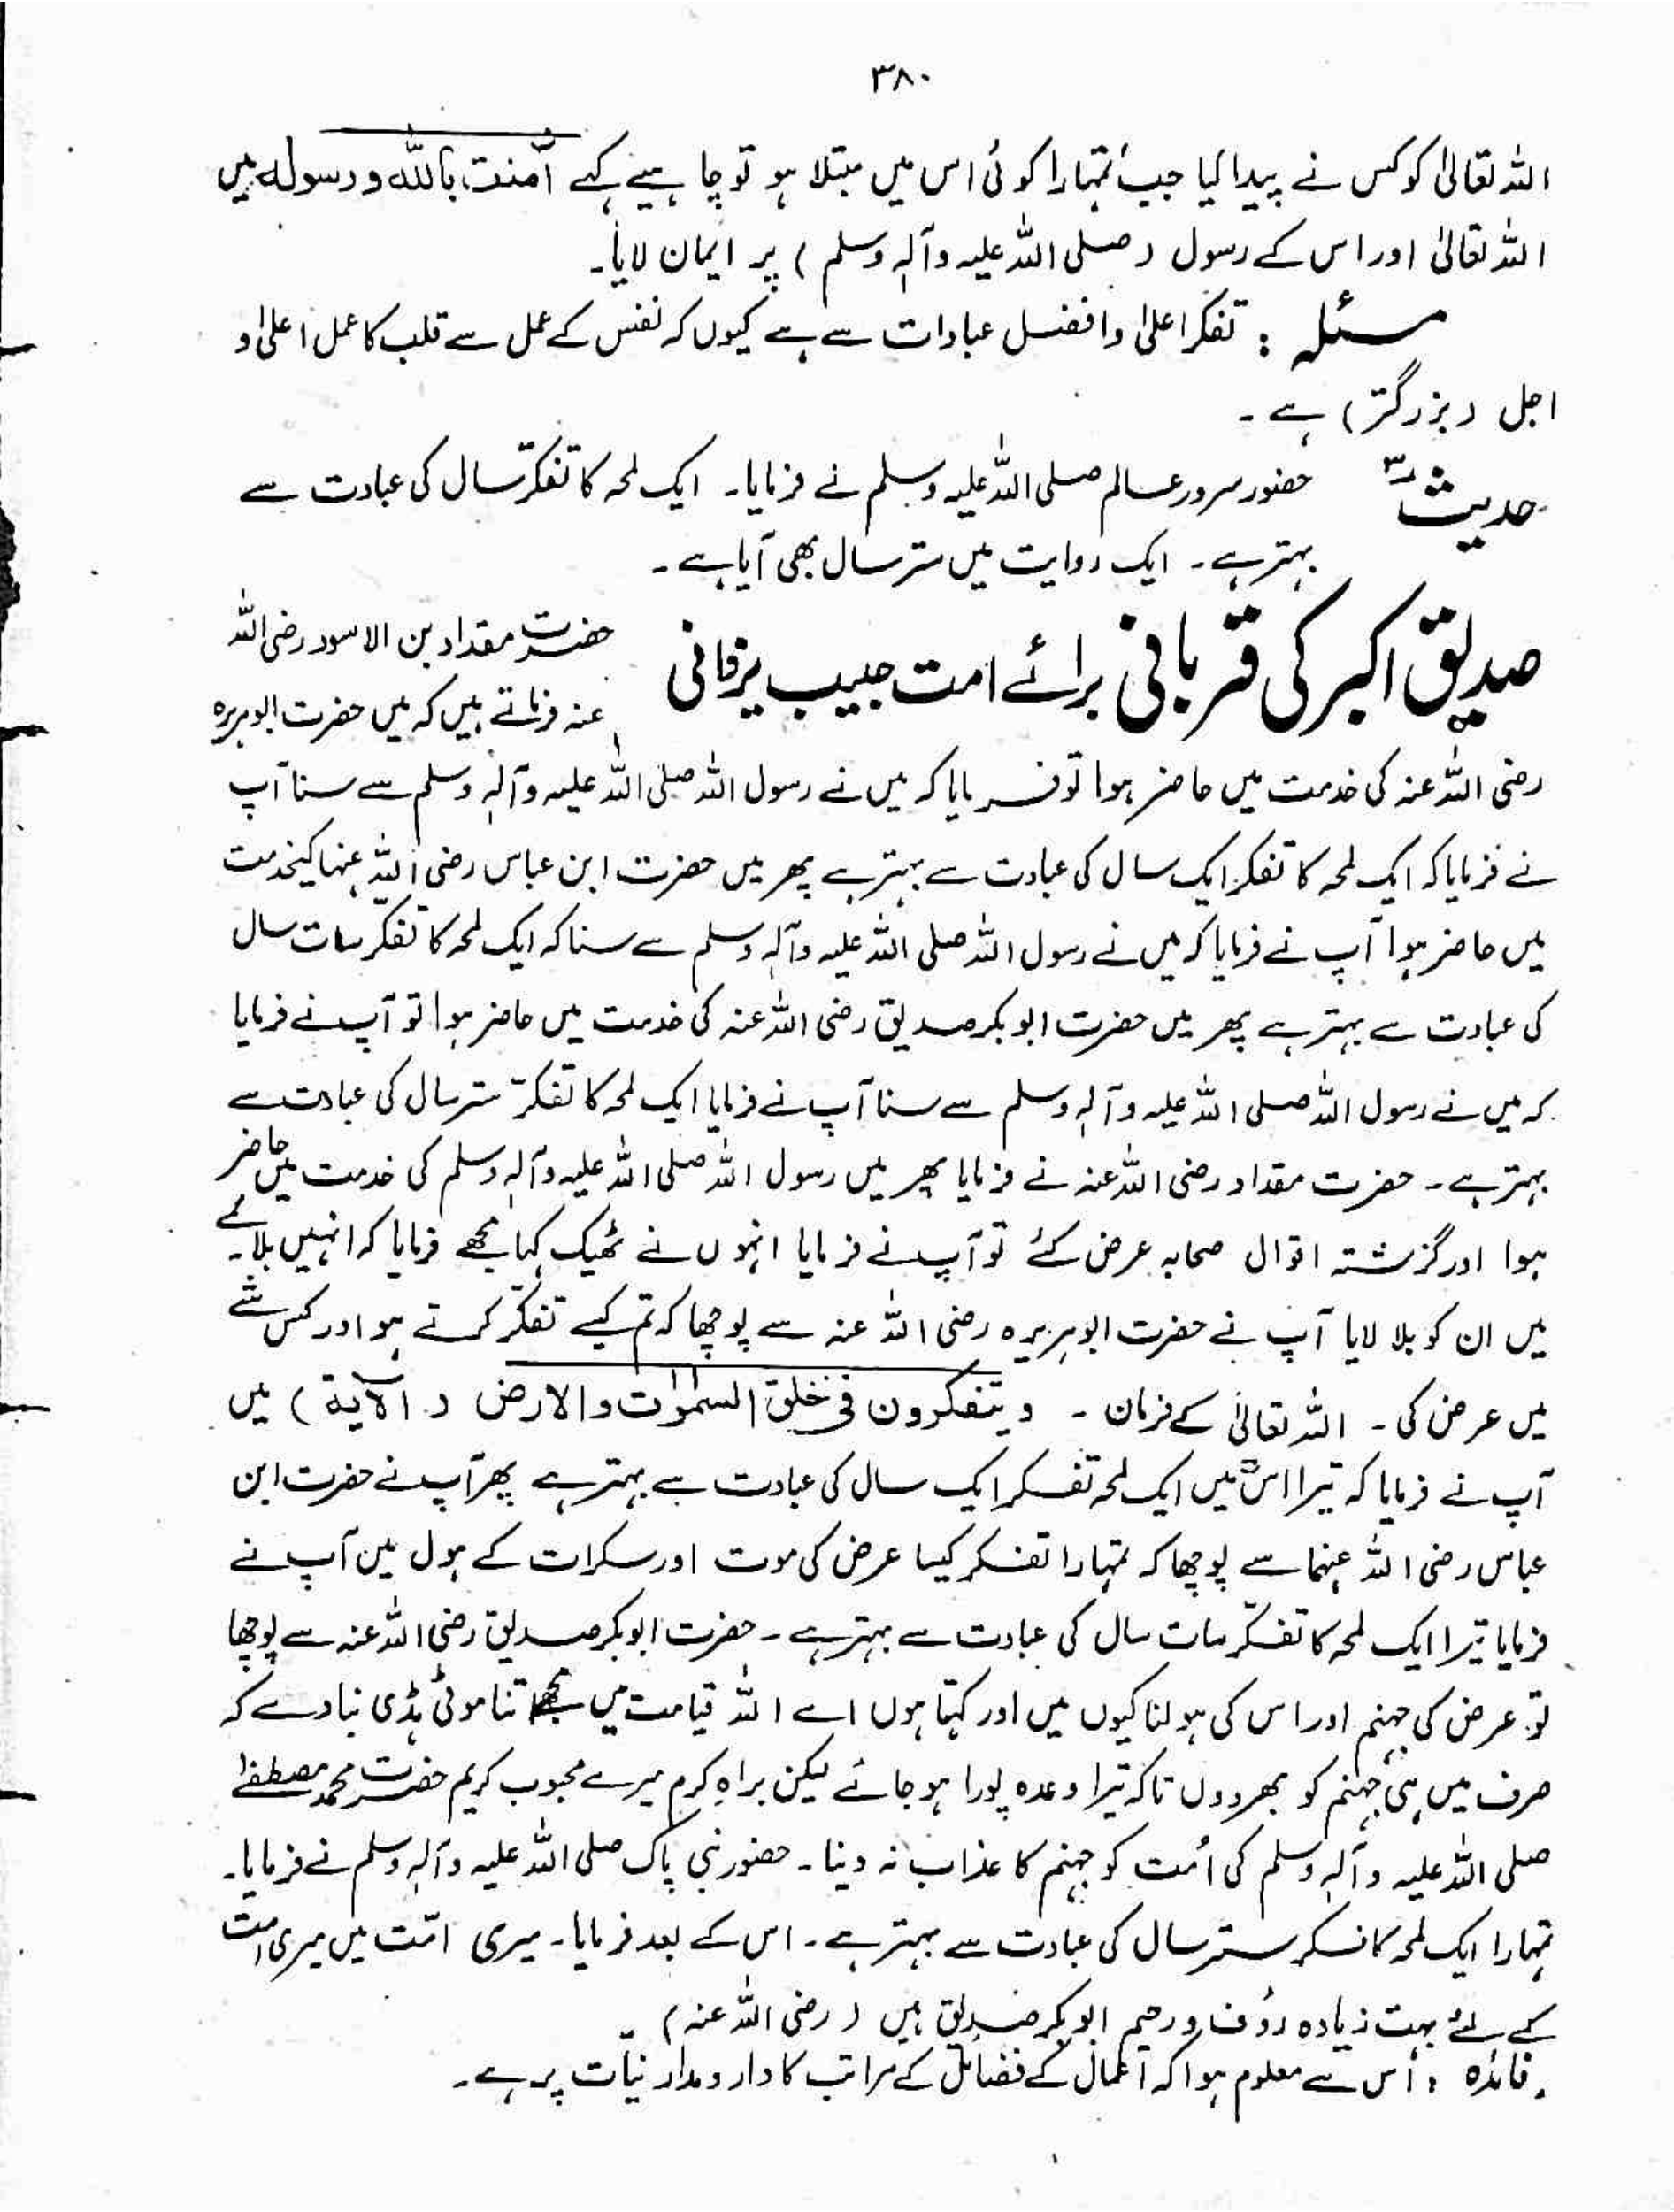 ٣٨٠
اللہ تعالیٰ کو کس نے پیدا کیا جب تمہارا کوئی اس میں مبتلا ہو تو چاہیے کہے آمنت باللہ ورسولہ میں
اللہ تعالیٰ اور اس کے رسول (صلی اللہ علیہ وآلہٖ وسلم) پر ایمان لایا۔
مسئلہ : تفکر اعلیٰ وافضل عبادات سے ہے کیوں کہ نفس کے عمل سے قلب کا عمل اعلیٰ و
اجل (بزرگتر) ہے۔
حدیث ۳ حضور سرور عالم صلی اللہ علیہ وسلم نے فرمایا۔ ایک لمحہ کا تفکر سال کی عبادت سے
بہتر ہے۔ ایک روایت میں ستر سال بھی آیا ہے۔
صدیق اکبر کی قربانی برائے امت حبیب یزدانی حضرت مقداد بن الاسود رضی اللہ
عنہ فرماتے ہیں کہ میں حضرت ابوہریرہ
رضی اللہ عنہ کی خدمت میں حاضر ہوا تو فرمایا کہ میں نے رسول اللہ صلی اللہ علیہ وآلہٖ وسلم سے سنا آپ
نے فرمایا کہ ایک لمحہ کا تفکر ایک سال کی عبادت سے بہتر ہے پھر میں حضرت ابن عباس رضی اللہ عنہا کیخدمت
میں حاضر ہوا آپ نے فرمایا کہ میں نے رسول اللہ صلی اللہ علیہ وآلہٖ وسلم سے سنا کہ ایک لمحہ کا تفکر سات سال
کی عبادت سے بہتر ہے پھر میں حضرت ابوبکر صدیق رضی اللہ عنہ کی خدمت میں حاضر ہوا تو آپ نے فرمایا
کہ میں نے رسول اللہ صلی اللہ علیہ وآلہٖ وسلم سے سنا آپ نے فرمایا ایک لمحہ کا تفکّر ستر سال کی عبادت سے
بہتر ہے۔ حضرت مقداد رضی اللہ عنہ نے فرمایا پھر میں رسول اللہ صلی اللہ علیہ وآلہٖ وسلم کی خدمت میں حاضر
ہوا اور گزشتہ اقوال صحابہ عرض کئے تو آپ نے فرمایا انہوں نے ٹھیک کہا مجھے فرمایا کہ انہیں بلائیے
میں ان کو بلا لایا آپ نے حضرت ابوہریرہ رضی اللہ عنہ سے پوچھا کہ تم کیسے تفکّر کرتے ہو اور کس شے
میں عرض کی۔ اللہ تعالیٰ کے فرمان۔ ویتفکرون فی خلق السمٰوٰت والارض (الآیۃ) میں
آپ نے فرمایا کہ تیرا اس میں ایک لمحہ تفکر ایک سال کی عبادت سے بہتر ہے پھر آپ نے حضرت ابن
عباس رضی اللہ عنہما سے پوچھا کہ تمہارا تفکر کیسا عرض کی موت اور سکرات کے ہول میں آپ نے
فرمایا تیرا ایک لمحہ کا تفکّر سات سال کی عبادت سے بہتر ہے۔ حضرت ابوبکر صدیق رضی اللہ عنہ سے پوچھا
تو عرض کی جہنم اور اس کی ہولناکیوں میں اور کہتا ہوں اے اللہ قیامت میں مجھے اتنا موٹی ہڈی بنا دے کہ
صرف میں ہی جہنم کو بھر دوں تاکہ تیرا وعدہ پورا ہو جائے لیکن براہِ کرم میرے محبوب کریم حضرت محمد مصطفےٰ
صلی اللہ علیہ وآلہٖ وسلم کی اُمت کو جہنم کا عذاب نہ دینا۔ حضور نبی پاک صلی اللہ علیہ وآلہٖ وسلم نے فرمایا۔
تمہارا ایک لمحہ کا فکر ستر سال کی عبادت سے بہتر ہے۔ اس کے بعد فرمایا۔ میری امّت میں میری امت
کے لئے بہت زیادہ رؤف و رحیم ابوبکر صدیق ہیں (رضی اللہ عنہ)
فائدہ : اس سے معلوم ہوا کہ اعمال کے فضائل کے مراتب کا دار و مدار نیّات پر ہے۔